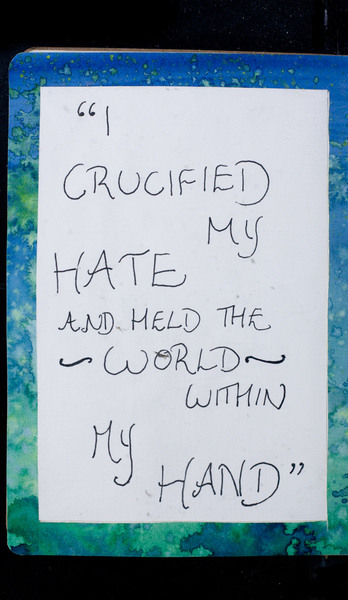 “I
CRUCIFIED
MY
HATE
AND HELD THE
~WORLD~
WITHIN
MY
HAND”